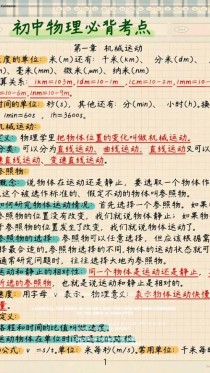 初中物理必背考点
第一章 机械运动
长度的单位: 米(m)还有: 千米(km)、分米(dm)、
、毫米(mm)、微米(μm)、纳米(nm)
1km=10³m, 1dm=10-1m
m=10-6m, 1nm=10-9m。
时间的单位: 秒(s), 其他还有: 分(min)、小时(h)。
1min=60s 1h=3600s。
机械运动
定义: 物理学里把物体位置的变化叫做机械运动。
分类: 可以分为直线运动、曲线运动, 直线运动又可以
直线运动、变速直线运动。
参照物
概念: 说物体在运动还是静止, 要选取一个物体作
这个被选作标准的, 假定不动的物体叫参照物。
如何研究物体运动情况: 首先选择一个参照物, 如果
参照物的位置没有改变, 我们就说物体静止; 如果
于参照物的位置发生了改变, 我们就说物体运动了。
参照物的选择: 参照物可以任意选择, 但应该根据需
择最合适的。参照物选择的不同, 物体的运动状态就可
通常研究问题时, 往往选择大地为参照物。
运动和静止的相对性: 同一个物体是运动还是静止,
所选的参照物, 也就是说运动和静止是相对的。
速度: 用字母 v 表示。物理意义: 表示物体运动快慢
量。
定义:
路程和时间的比值叫做速度。
运动物体在单位时间内通过的路程。
公式: v =s/t。单位: 米每秒(m/s), 常用单位: 千米每
1